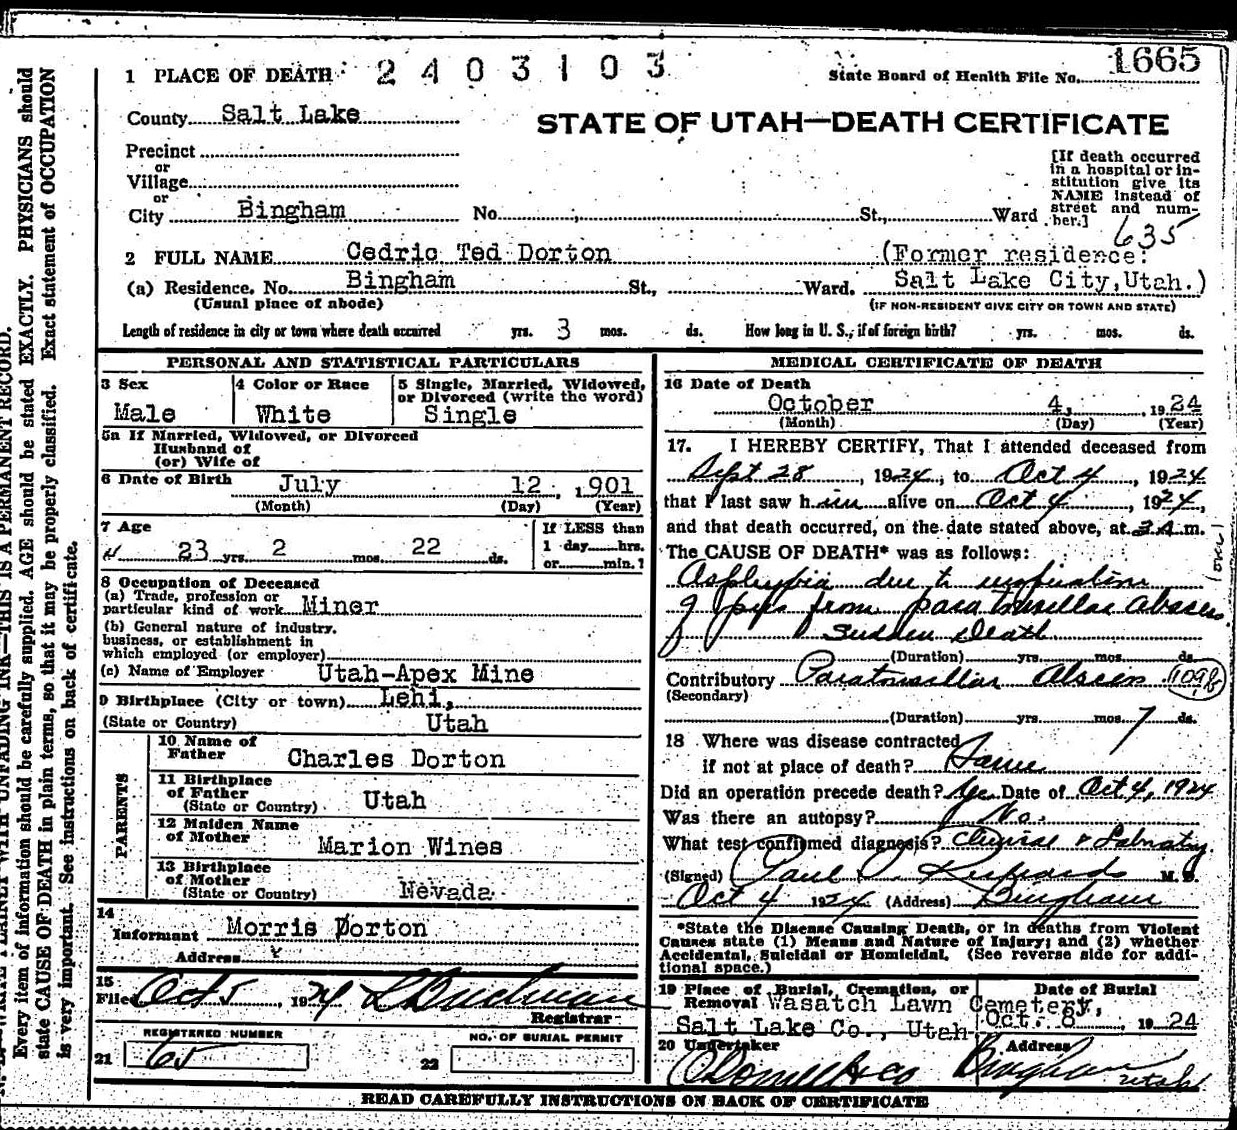 1665
1 PLACE OF DEATH 2 4 0 3 1 0 3 State Board of Health File No.
County Salt Lake
STATE OF UTAH—DEATH CERTIFICATE
Precinct
or
Village
or
City Bingham No. St., Ward
[If death occurred
in a hospital or in-
stitution give its
NAME instead of
street and num-
ber.]
635
2 FULL NAME Cedric Ted Dorton (Former residence:
(a) Residence. No. Bingham St., Ward. Salt Lake City, Utah.)
(Usual place of abode) (IF NON-RESIDENT GIVE CITY OR TOWN AND STATE)
Length of residence in city or town where death occurred yrs. 3 mos. ds. How long in U. S., if of foreign birth? yrs. mos. ds.
PERSONAL AND STATISTICAL PARTICULARS
3 Sex
Male
4 Color or Race
White
5 Single, Married, Widowed,
or Divorced (write the word)
Single
5a If Married, Widowed, or Divorced
Husband of
(or) Wife of
6 Date of Birth July 12, 1901
(Month) (Day) (Year)
7 Age
23 yrs. 2 mos. 22 ds.
If LESS than
1 day hrs.
or min.?
8 Occupation of Deceased
(a) Trade, profession or
particular kind of work Miner
(b) General nature of industry,
business, or establishment in
which employed (or employer)
(c) Name of Employer Utah-Apex Mine
9 Birthplace (City or town) Lehi,
(State or Country) Utah
PARENTS
10 Name of
Father Charles Dorton
11 Birthplace
of Father
(State or Country) Utah
12 Maiden Name
of Mother Marion Wines
13 Birthplace
of Mother
(State or Country) Nevada
14
Informant Morris Dorton
Address
15
Filed Oct 5, 1924
Registrar
REGISTERED NUMBER
21 65
NO. OF BURIAL PERMIT
22
MEDICAL CERTIFICATE OF DEATH
16 Date of Death
October 4, 1924
(Month) (Day) (Year)
17. I HEREBY CERTIFY, That I attended deceased from
Sept 28, 1924, to Oct 4, 1924
that I last saw him alive on Oct 4, 1924,
and that death occurred, on the date stated above, at 3 A m.
The CAUSE OF DEATH* was as follows:
Asphyxia due to inspiration
of pus from para tonsillar Abscess
Sudden Death
(Duration) yrs. mos. ds.
Contributory Paratonsillar Abscess 109b
(Secondary)
(Duration) yrs. mos. 7 ds.
18 Where was disease contracted
if not at place of death? Same
Did an operation precede death? Yes Date of Oct 4, 1924
Was there an autopsy? No.
What test confirmed diagnosis? Clinical & Laboratory
(Signed) Paul S. Richards M. D.
Oct 4 1924 (Address) Bingham
*State the Disease Causing Death, or in deaths from Violent
Causes state (1) Means and Nature of Injury; and (2) whether
Accidental, Suicidal or Homicidal. (See reverse side for addi-
tional space.)
19 Place of Burial, Cremation, or
Removal Wasatch Lawn Cemetery,
Salt Lake Co., Utah
Date of Burial
Oct. 8, 1924
20 Undertaker
O'Donnell & Co
Address
Bingham Utah
READ CAREFULLY INSTRUCTIONS ON BACK OF CERTIFICATE
WRITE PLAINLY WITH UNFADING INK—THIS IS A PERMANENT RECORD.
Every item of information should be carefully supplied. AGE should be stated EXACTLY. PHYSICIANS should
state CAUSE OF DEATH in plain terms, so that it may be properly classified. Exact statement of OCCUPATION
is very important. See instructions on back of certificate.